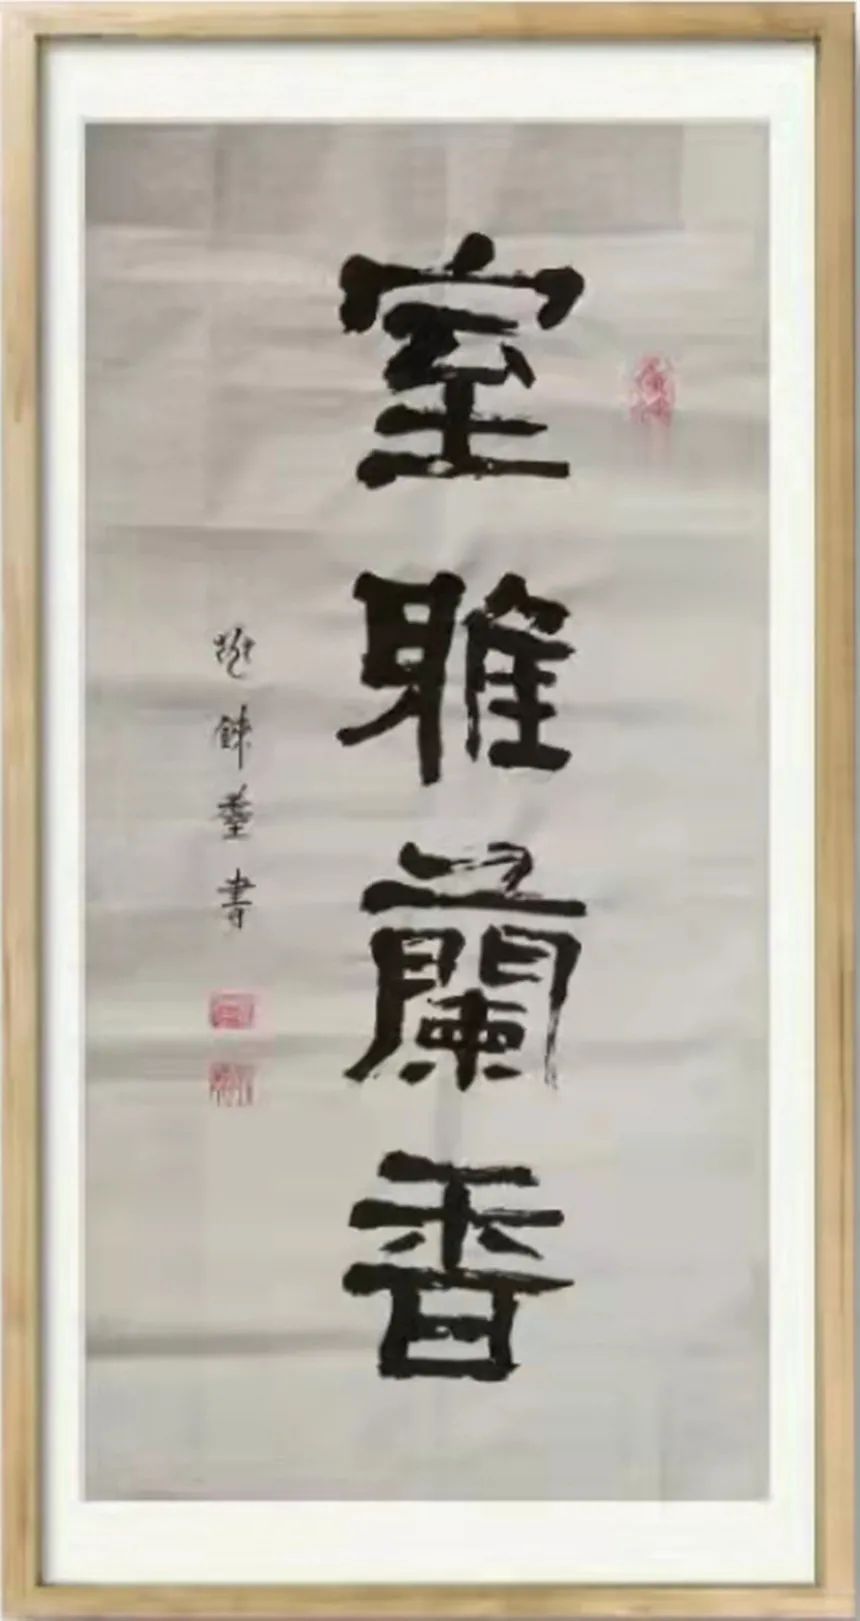 室雅蘭香
書